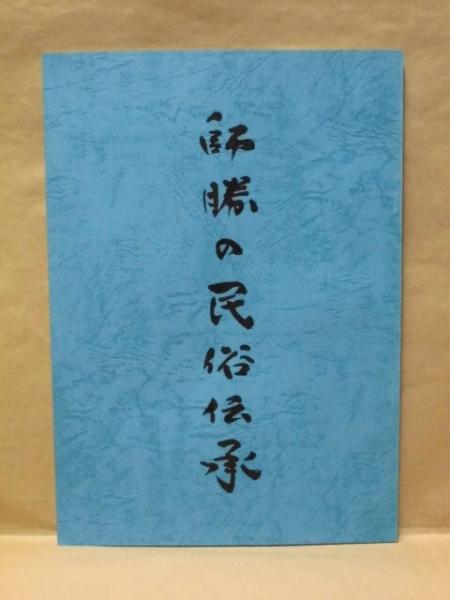 師勝の民俗伝承